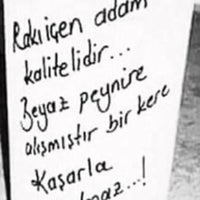 Rakı içen adam
kalitelidir...
Beyaz peynire
alışmıştır bir kere
Kaşarla
maz...!